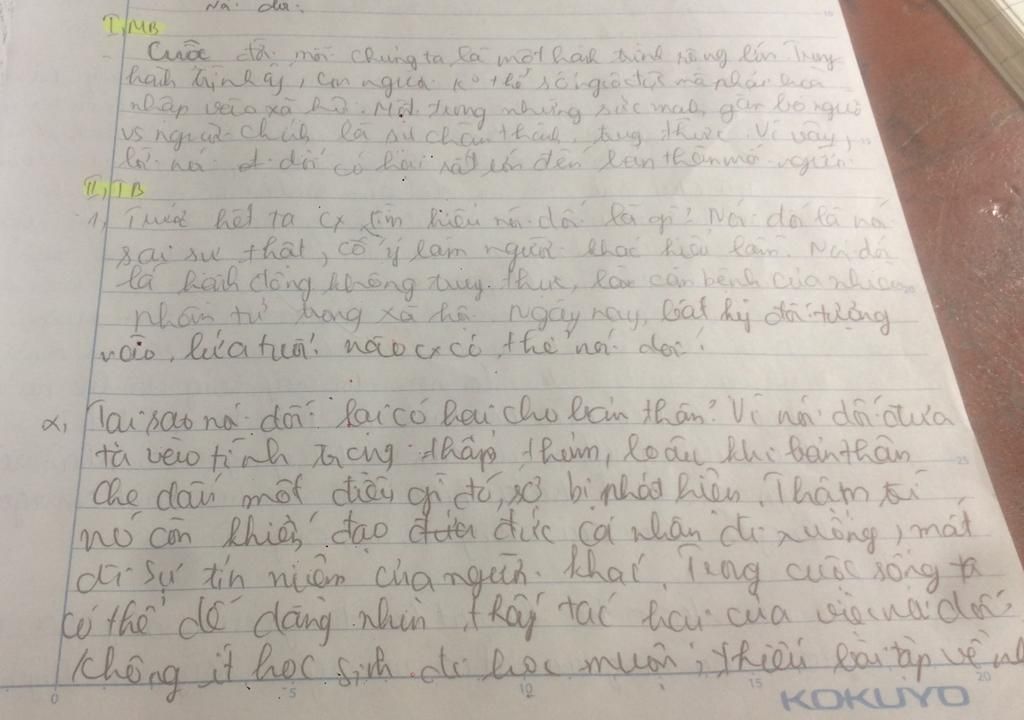 Nói dối.
I, MB
Cuộc đời mỗi chúng ta là một hành trình rộng lớn Trong
hành trình ấy, con người k° thể sống cô độc mà phải hòa
nhập vào xã hội. Một trong những sức mạnh gắn bó người
vs người chính là sự chân thành, trung thực. Vì vậy,
lời nói dối có hại rất lớn đến bản thân mỗi người.
II, TB
1, Trước hết ta cx tìm hiểu nói dối là gì? Nói dối là nói
sai sự thật, cố ý làm người khác hiểu lầm. Nói dối
là hành động không trung thực, là căn bệnh của nhiều
phần tử trong xã hội ngày nay, bất kỳ đối tượng
nào, lứa tuổi nào cx có thể nói dối.
2, Tại sao nói dối lại có hại cho bản thân? Vì nói dối đưa
ta vào tình trạng thấp thỏm, lo âu khi bản thân
che dấu một điều gì đó, sợ bị phát hiện. Thậm tới
nó còn khiến đạo đức cá nhân đi xuống, mất
đi sự tín niệm của người khác. Trong cuộc sống ta
có thể dễ dàng nhìn thấy tác hại của việc nói dối
Không ít học sinh đi học muộn, thiếu bài tập về nh
0 5 10 15 20
KOKUYO